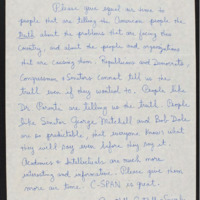 Please give equal air time to
people that are telling the American people the
truth about the problems that are facing this
Country, and about the people and organizations
that are causing them. Republicans and Democrats,
Congressmen & Senators cannot tell us the
truth even if they wanted to. People like
Dr. are telling us the truth. People
like Senator George Mitchell and Bob Dole
are so predictable, that everyone knows what
they will say even before they say it.
Academics & Intellectuals are much more
interesting and informative. Please give them
more air time. C-SPAN is great.